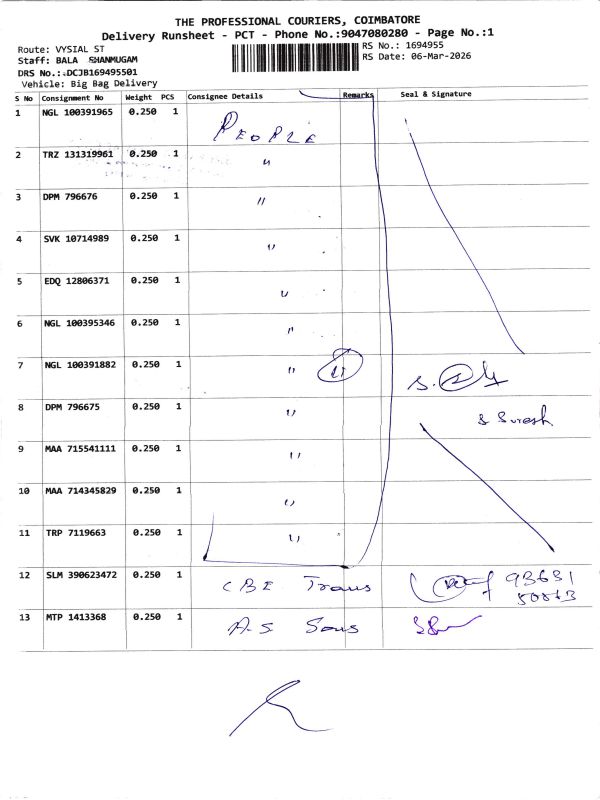 THE PROFESSIONAL COURIERS, COIMBATORE
Delivery Runsheet - PCT - Phone No.:9047080280 - Page No.:1
Route: VYSIAL ST
RS No.: 1694955
Staff: BALA SHANMUGAM
RS Date: 06-Mar-2026
DRS No.: DCJB169495501
Vehicle: Big Bag Delivery
S No Consignment No Weight PCS Consignee Details Remarks Seal & Signature
1 NGL 100391965 0.250 1 PEOPLE
2 TRZ 131319961 0.250 1 "
3 DPM 796676 0.250 1 "
4 SVK 10714989 0.250 1 "
5 EDQ 12806371 0.250 1 "
6 NGL 100395346 0.250 1 "
7 NGL 100391882 0.250 1 " 11
8 DPM 796675 0.250 1 "
S Suresh
9 MAA 715541111 0.250 1 "
10 MAA 714345829 0.250 1 "
11 TRP 7119663 0.250 1 "
12 SLM 390623472 0.250 1 CBE Trans 93631
13 MTP 1413368 0.250 1 A.S. Sons